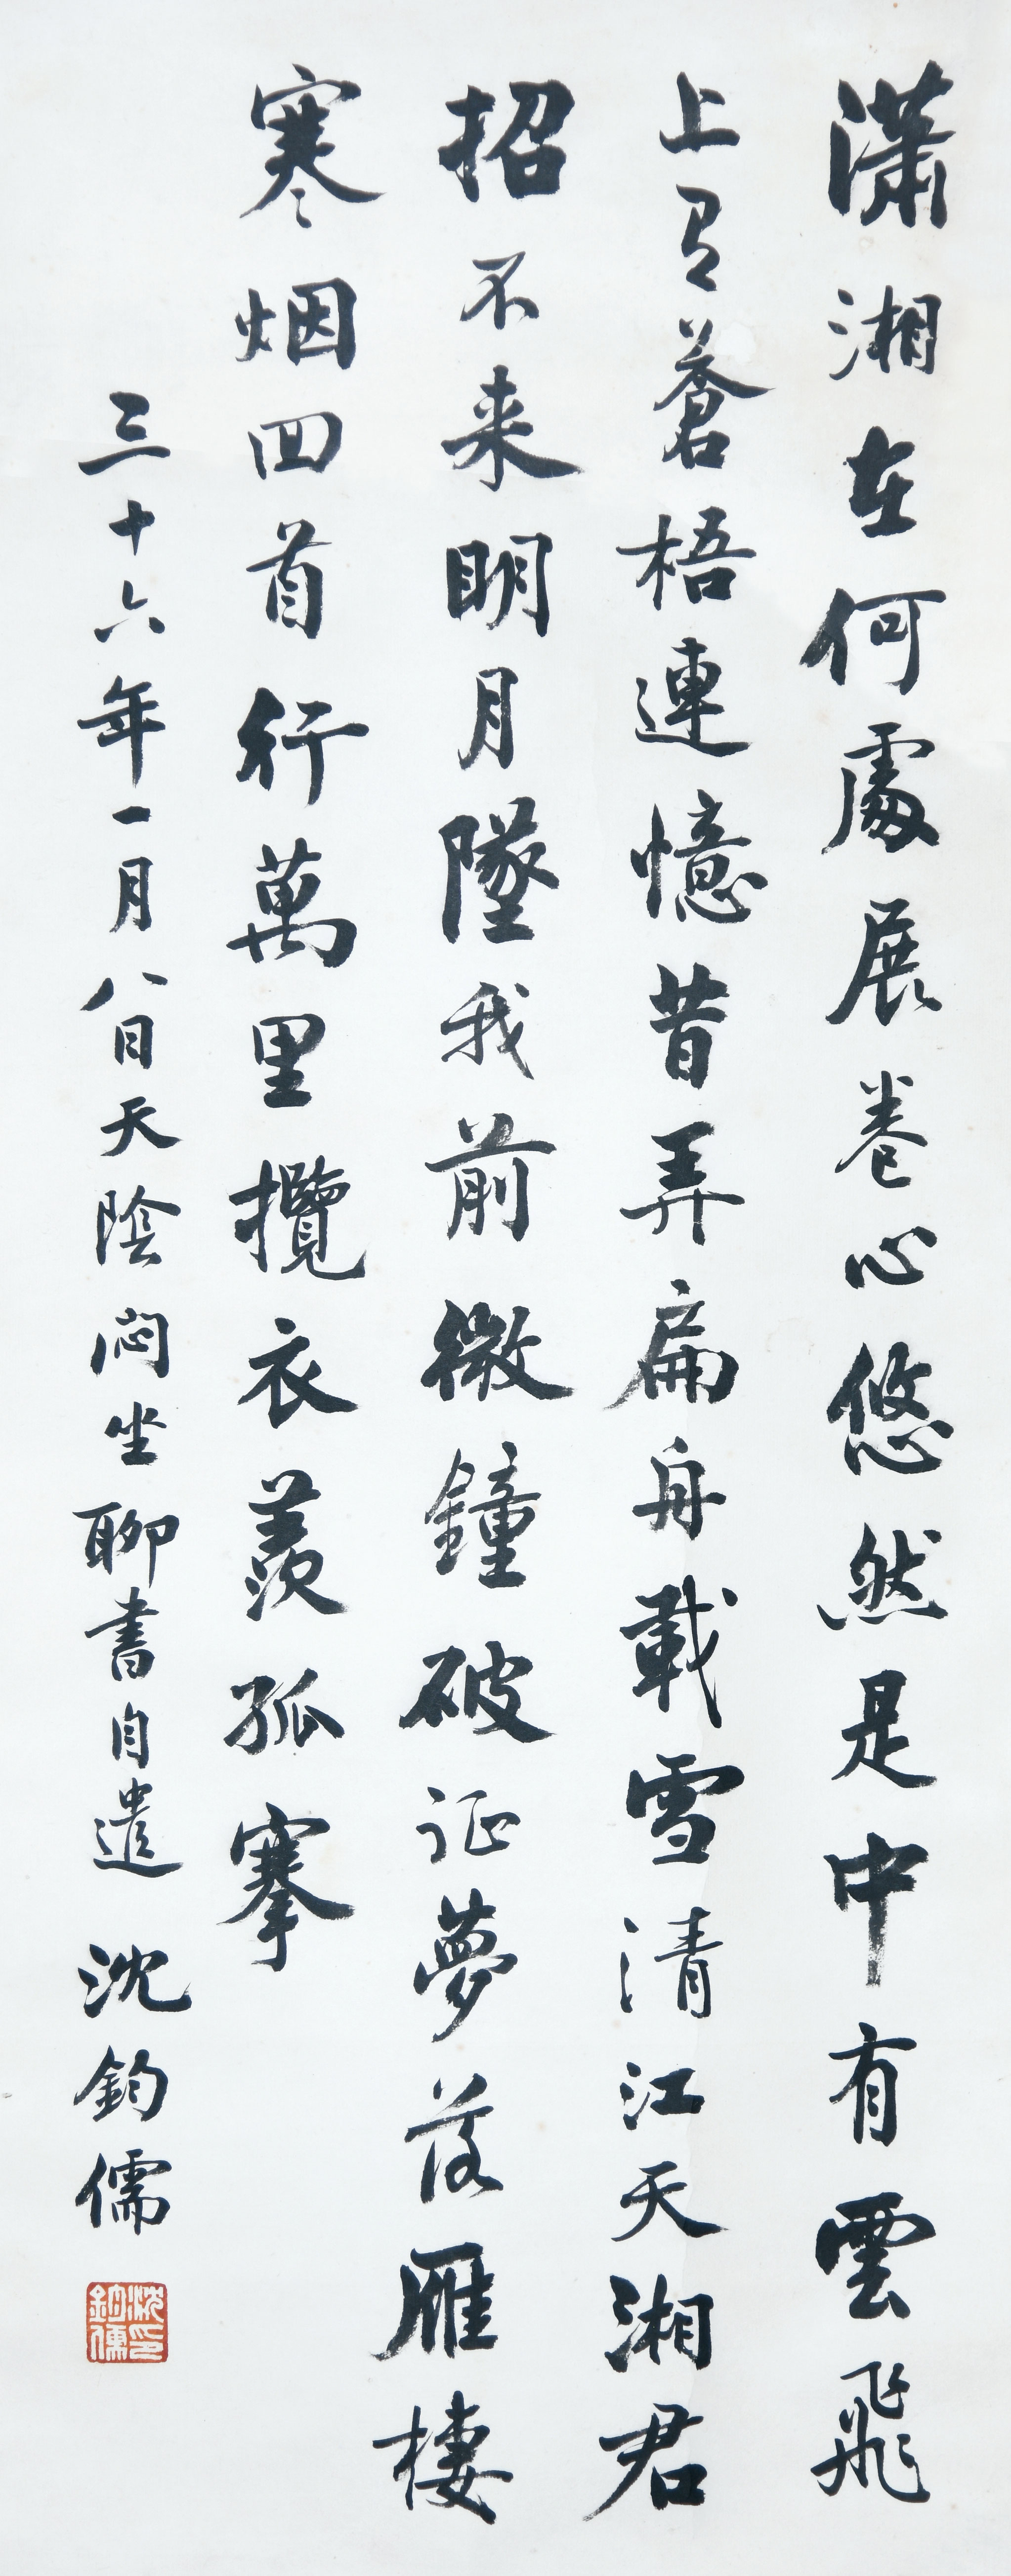 瀟湘在何處展卷心悠然是中有雲飛
上與蒼梧連憶昔弄扁舟載雪清江天湘君
招不来明月墜我前微鐘破证夢落雁棲
寒烟回首行萬里攬衣羨孤搴
三十六年一月八日天陰悶坐聊書自遣 沈鈞儒
沈鈞儒印